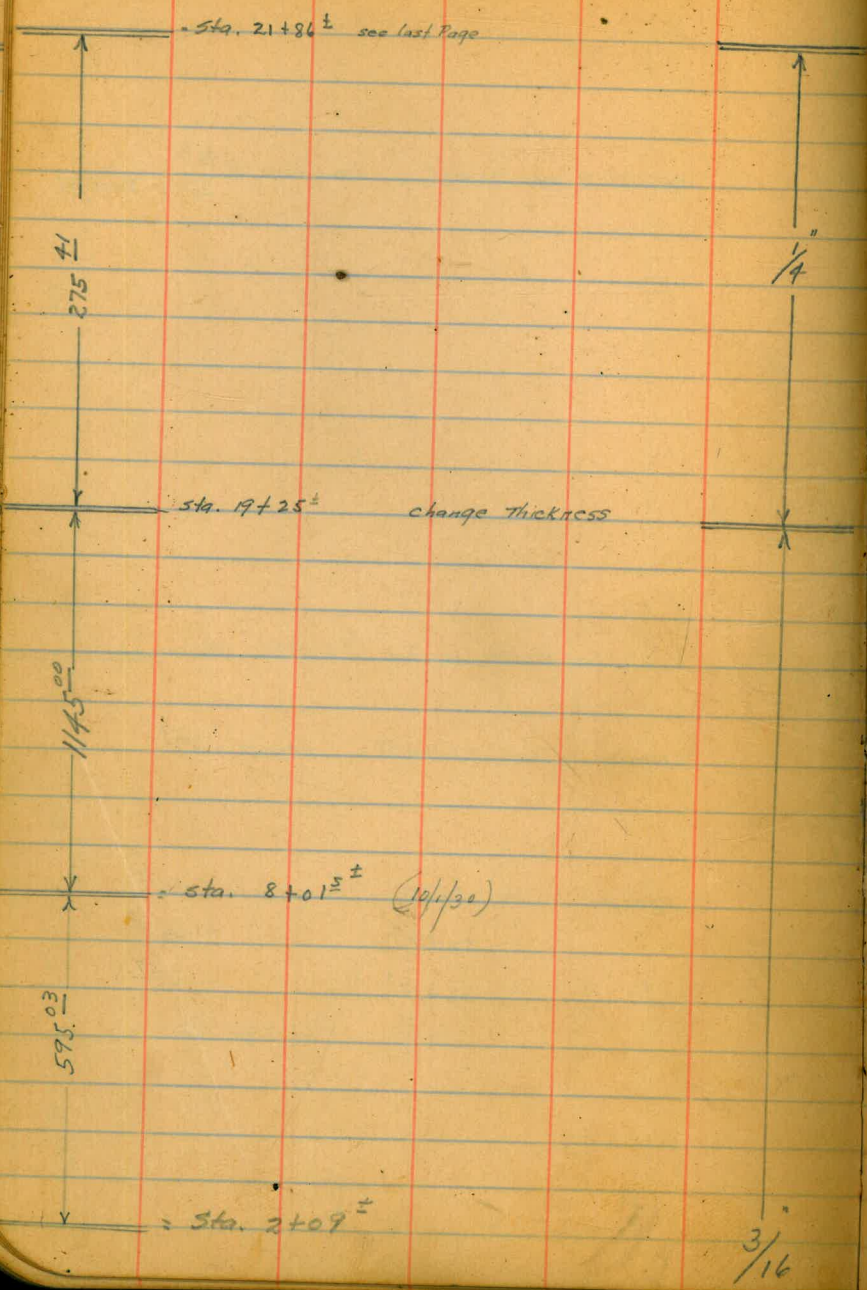 = Sta. 21+86 ± see last Page
275 41
1/4"
sta. 19+25 ± change Thickness
1145 00
= sta. 8+01 5 ± (10/1/30)
595.03
= Sta. 2+09 ±
3/16"